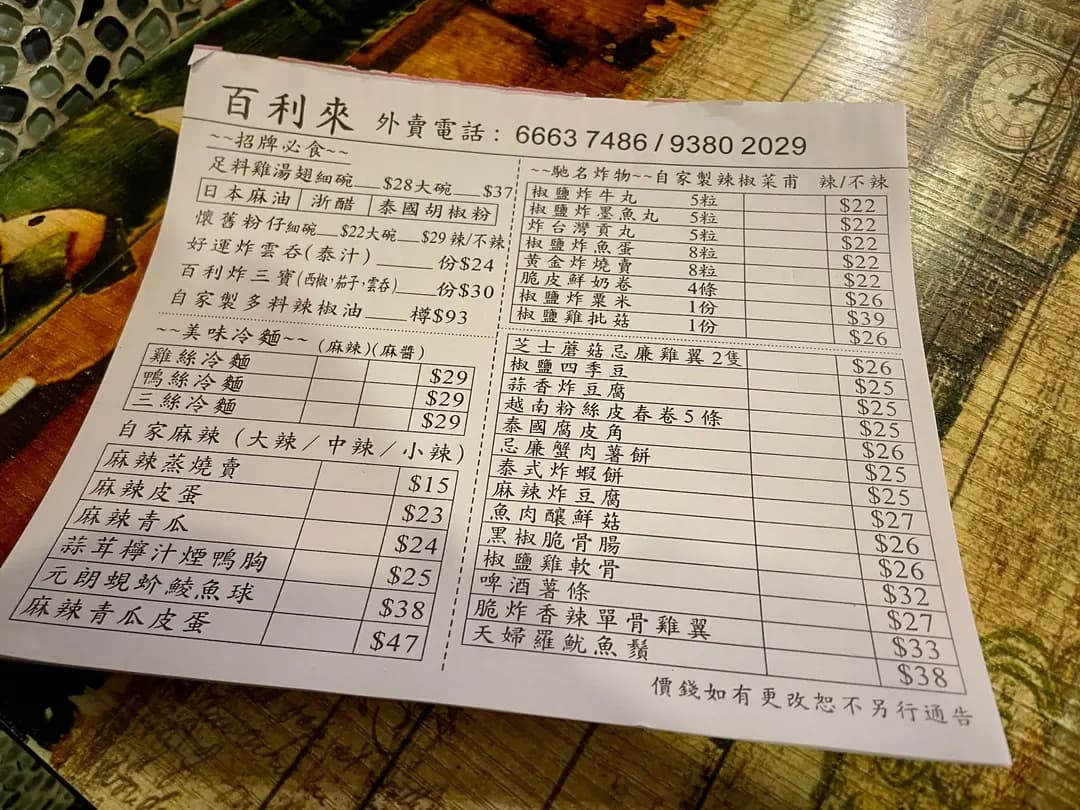 百利來 外賣電話：6663 7486 / 9380 2029
~~招牌必食~~
足料雞湯翅細碗__$28大碗__$37
日本麻油 浙醋 泰國胡椒粉
懷舊粉仔細碗__$22大碗__$29 辣/不辣
好運炸雲吞(泰汁)____份$24
百利炸三寶(西椒,茄子,雲吞)____份$30
自家製多料辣椒油____樽$93
~~美味冷麵~~ (麻辣)(麻醬)
雞絲冷麵 $29
鴨絲冷麵 $29
三絲冷麵 $29
自家麻辣（大辣/中辣/小辣）
麻辣蒸燒賣 $15
麻辣皮蛋 $23
麻辣青瓜 $24
蒜茸檸汁煙鴨胸 $25
元朗蜆蚧鯪魚球 $38
麻辣青瓜皮蛋 $47
~~馳名炸物~~自家製辣椒菜甫 辣/不辣
椒鹽炸牛丸 5粒 $22
椒鹽炸墨魚丸 5粒 $22
炸台灣貢丸 5粒 $22
椒鹽炸魚蛋 8粒 $22
黃金炸燒賣 8粒 $22
脆皮鮮奶卷 4條 $26
椒鹽炸粟米 1份 $39
椒鹽雞批菇 1份 $26
芝士蘑菇忌廉雞翼2隻 $26
椒鹽四季豆 $25
蒜香炸豆腐 $25
越南粉絲皮春卷5條 $25
泰國腐皮角 $26
忌廉蟹肉薯餅 $25
泰式炸蝦餅 $25
麻辣炸豆腐 $27
魚肉釀鮮菇 $26
黑椒脆骨腸 $26
椒鹽雞軟骨 $32
啤酒薯條 $27
脆炸香辣單骨雞翼 $33
天婦羅魷魚鬚 $38
價錢如有更改恕不另行通告